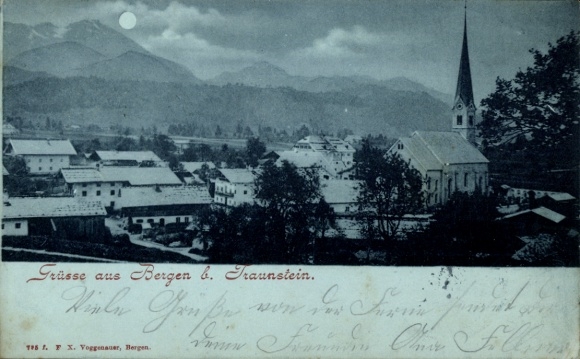 Grüsse aus Bergen b. Traunstein.
Viele Grüße von der Ferne sendet
deine Freundin
795 F. X. Voggenauer, Bergen.